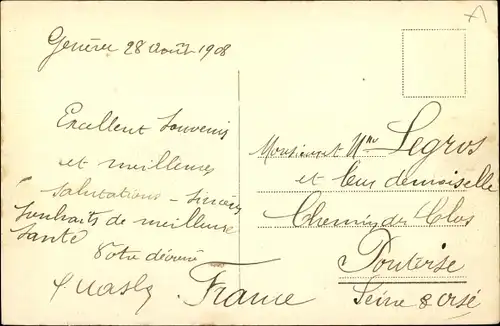 Genève 28 août 1908
Excellent Souvenir
et meilleures
salutations - Sincères
Souhaits de meilleure
Santé
Votre dévoué
Monsieur et Mme Legros
et leur demoiselle
Chemin du Clos
Pontoise
Seine & Oise
France